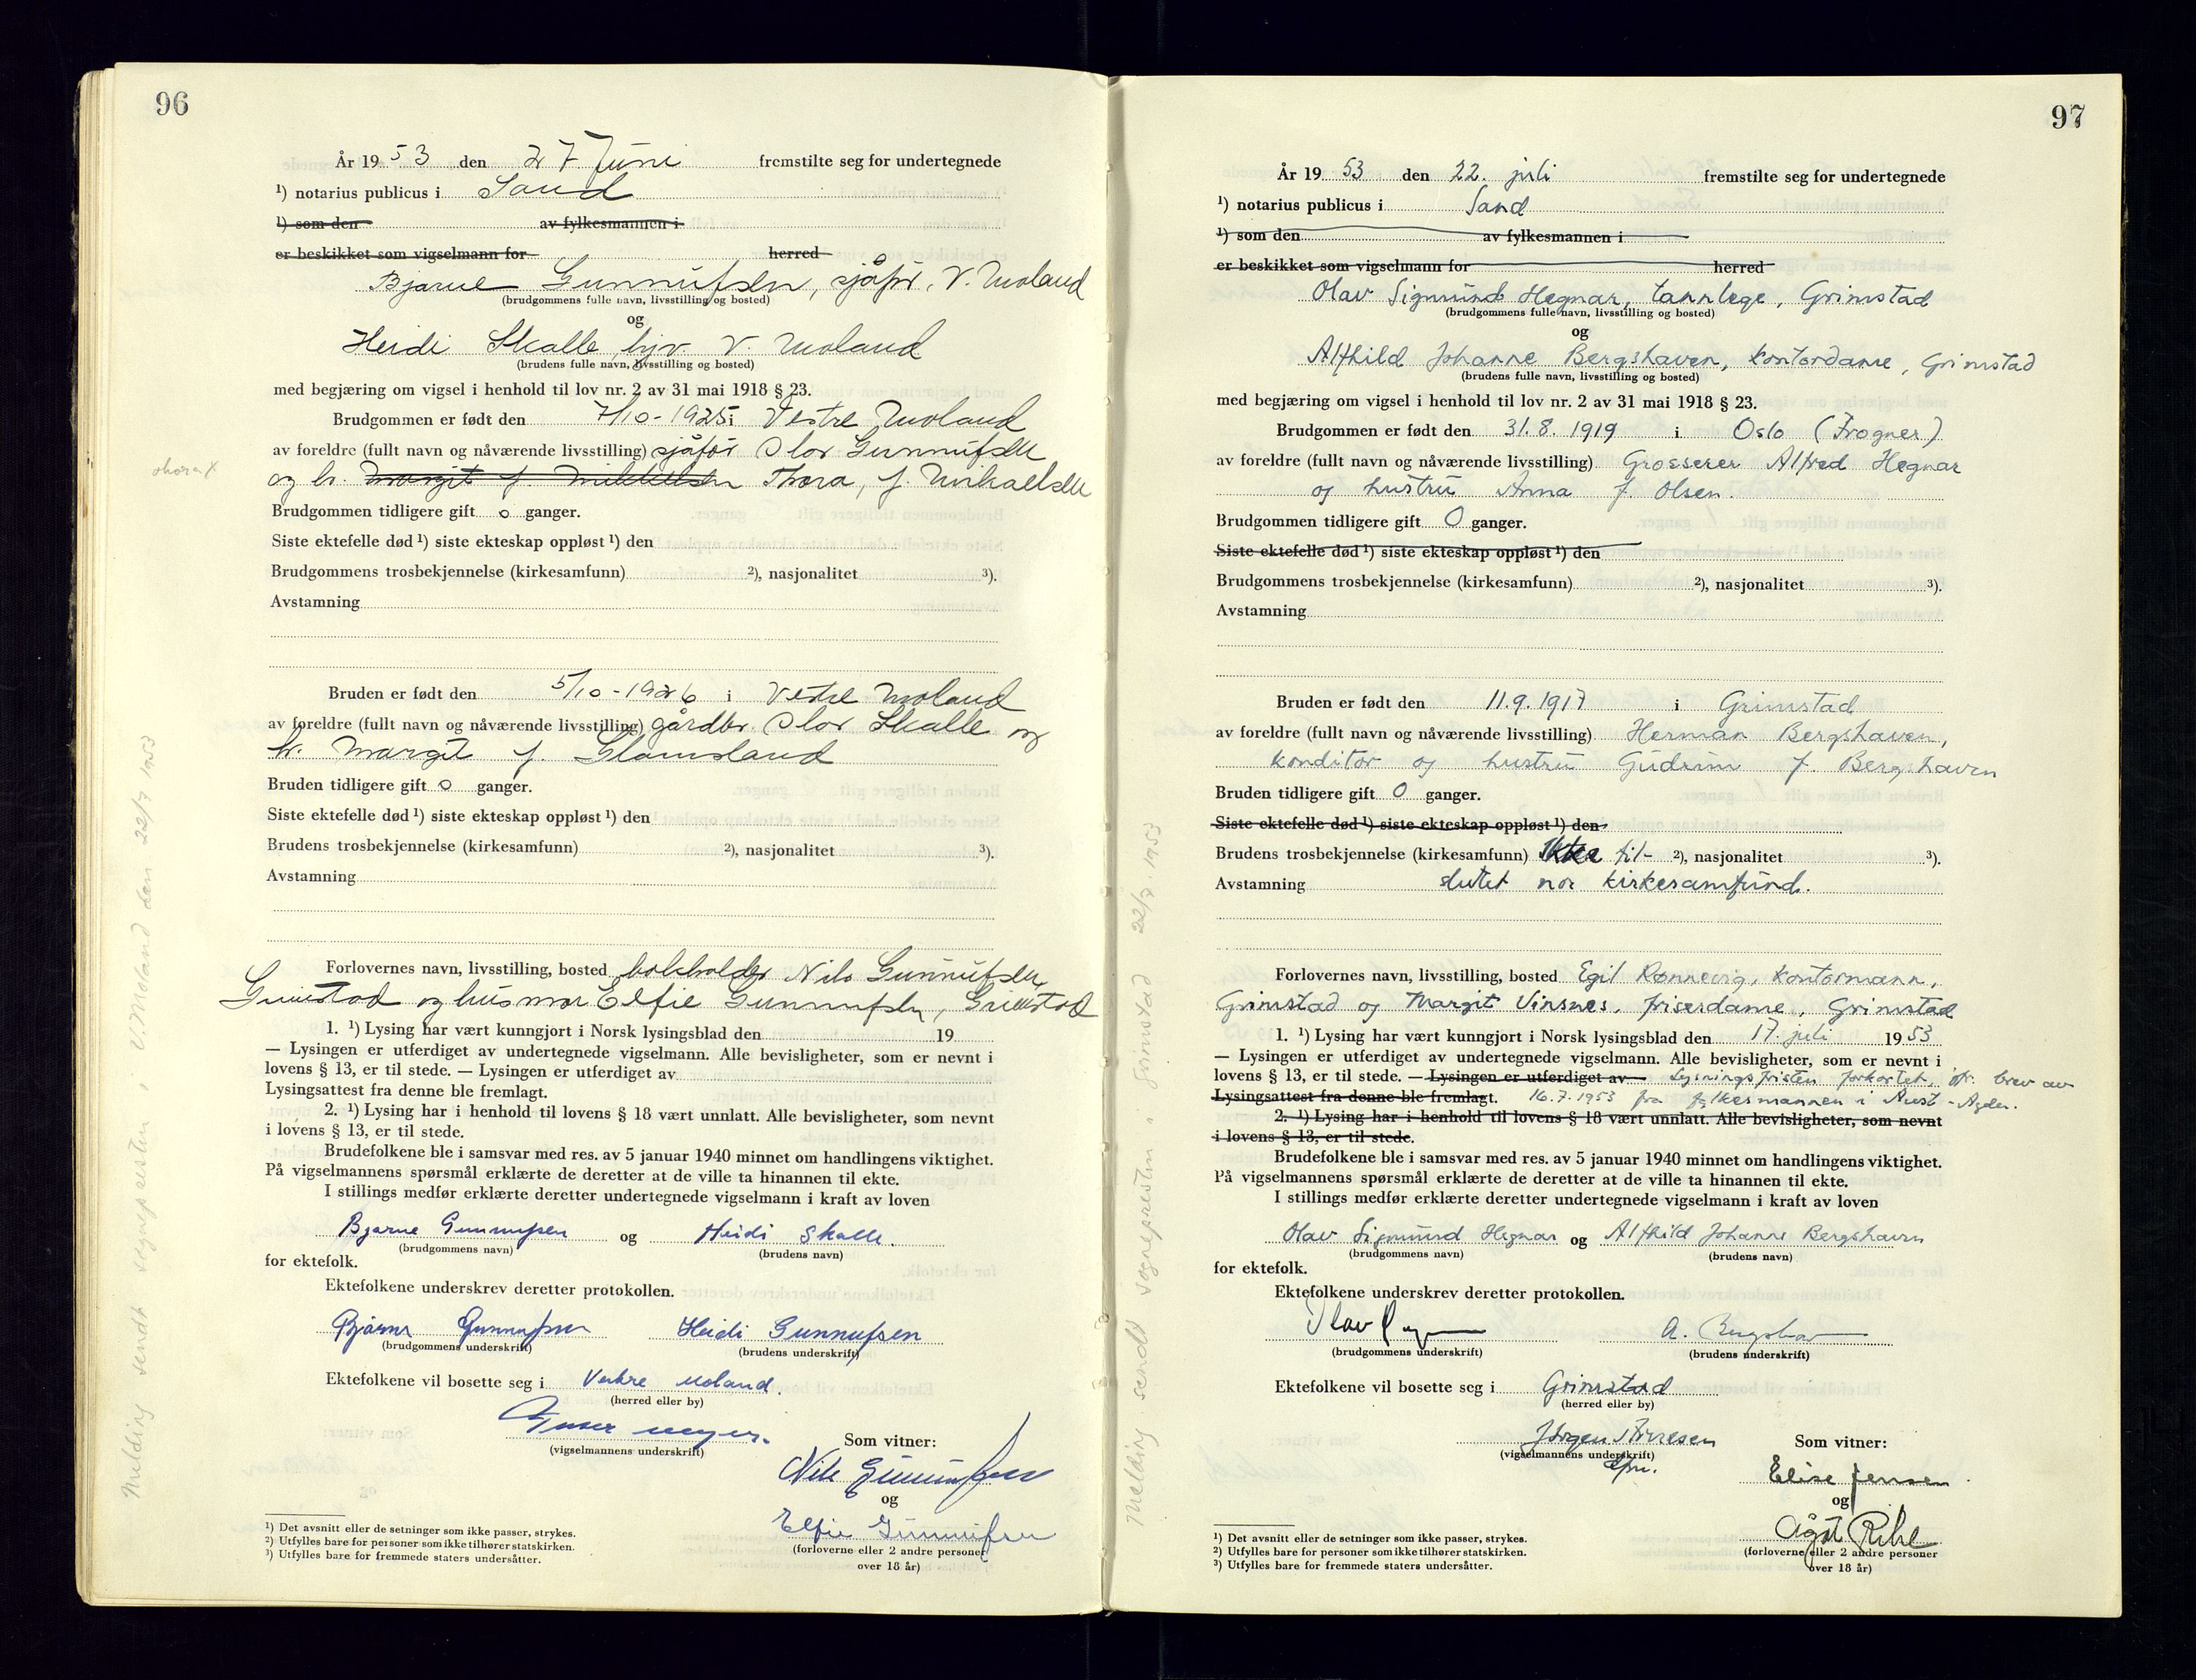 96
År 19 53 den 27 Juni fremstilte seg for undertegnede
¹) notarius publicus i Sand
¹) som den av fylkesmannen i
er beskikket som vigselmann for herred
Bjarne Gunnufsen, sjåfør, V. Moland
(brudgommens fulle navn, livsstilling og bosted)
og
Heidi Skalle, hjv V. Moland
(brudens fulle navn, livsstilling og bosted)
med begjæring om vigsel i henhold til lov nr. 2 av 31 mai 1918 § 23.
Brudgommen er født den 7/10-1925 i Vestre Moland
av foreldre (fullt navn og nåværende livsstilling) sjåfør Olav Gunnufsen
og h. Margit f. Mikkelsen Thora, f. Mikaelsen
Brudgommen tidligere gift 0 ganger.
Siste ektefelle død ¹) siste ekteskap oppløst ¹) den
Brudgommens trosbekjennelse (kirkesamfunn) ²), nasjonalitet ³).
Avstamning
Bruden er født den 5/10-1926 i Vestre Moland
av foreldre (fullt navn og nåværende livsstilling) gårdbr. Olav Skalle og
h. Margit f. Glamsland
Bruden tidligere gift 0 ganger.
Siste ektefelle død ¹) siste ekteskap oppløst ¹) den
Brudens trosbekjennelse (kirkesamfunn) ²), nasjonalitet ³).
Avstamning
Forlovernes navn, livsstilling, bosted bokholder Nils Gunnufsen,
Grimstad og husmor Elfie Gunnufsen, Grimstad
1. ¹) Lysing har vært kunngjort i Norsk lysingsblad den 19
— Lysingen er utferdiget av undertegnede vigselmann. Alle bevisligheter, som er nevnt i
lovens § 13, er til stede. — Lysingen er utferdiget av
Lysingsattest fra denne ble fremlagt.
2. ¹) Lysing har i henhold til lovens § 18 vært unnlatt. Alle bevisligheter, som nevnt
i lovens § 13, er til stede.
Brudefolkene ble i samsvar med res. av 5 januar 1940 minnet om handlingens viktighet.
På vigselmannens spørsmål erklærte de deretter at de ville ta hinannen til ekte.
I stillings medfør erklærte deretter undertegnede vigselmann i kraft av loven
Bjarne Gunnufsen og Heidi Skalle.
(brudgommens navn) (brudens navn)
for ektefolk.
Ektefolkene underskrev deretter protokollen.
Bjarne Gunnufsen Heidi Gunnufsen
(brudgommens underskrift) (brudens underskrift)
Ektefolkene vil bosette seg i Vestre Moland.
(herred eller by)
(vigselmannens underskrift)
Som vitner:
Nils Gunnufsen
og
Elfie Gunnufsen
(forloverne eller 2 andre personer
over 18 år)
¹) Det avsnitt eller de setninger som ikke passer, strykes.
²) Utfylles bare for personer som ikke tilhører statskirken.
³) Utfylles bare for fremmede staters undersåtter.
Melding sendt sognepresten i V. Moland den 22/7 1953
97
År 19 53 den 22. juli fremstilte seg for undertegnede
¹) notarius publicus i Sand
¹) som den av fylkesmannen i
er beskikket som vigselmann for herred
Olav Sigmund Hegnar, tannlege, Grimstad
(brudgommens fulle navn, livsstilling og bosted)
og
Alfhild Johanne Bergshaven, kontordame, Grimstad
(brudens fulle navn, livsstilling og bosted)
med begjæring om vigsel i henhold til lov nr. 2 av 31 mai 1918 § 23.
Brudgommen er født den 31.8.1919 i Oslo (Frogner)
av foreldre (fullt navn og nåværende livsstilling) Grosserer Alfred Hegnar
og hustru Anna f. Olsen.
Brudgommen tidligere gift 0 ganger.
Siste ektefelle død ¹) siste ekteskap oppløst ¹) den
Brudgommens trosbekjennelse (kirkesamfunn) ²), nasjonalitet ³).
Avstamning
Bruden er født den 11.9.1917 i Grimstad
av foreldre (fullt navn og nåværende livsstilling) Herman Bergshaven,
konditor og hustru Gudrun f. Bergshaven
Bruden tidligere gift 0 ganger.
Siste ektefelle død ¹) siste ekteskap oppløst ¹) den
Brudens trosbekjennelse (kirkesamfunn) Ikke til- ²), nasjonalitet ³).
Avstamning sluttet noe kirkesamfund.
Forlovernes navn, livsstilling, bosted Egil Rønnevig, kontormann,
Grimstad og Margit Vinsnes, friserdame, Grimstad
1. ¹) Lysing har vært kunngjort i Norsk lysingsblad den 17. juli 19 53
— Lysingen er utferdiget av undertegnede vigselmann. Alle bevisligheter, som er nevnt i
lovens § 13, er til stede. — Lysingen er utferdiget av Lysningsfristen forkortet, jfr. brev av
Lysingsattest fra denne ble fremlagt. 16.7.1953 fra fylkesmannen i Aust-Agder.
2. ¹) Lysing har i henhold til lovens § 18 vært unnlatt. Alle bevisligheter, som nevnt
i lovens § 13, er til stede.
Brudefolkene ble i samsvar med res. av 5 januar 1940 minnet om handlingens viktighet.
På vigselmannens spørsmål erklærte de deretter at de ville ta hinannen til ekte.
I stillings medfør erklærte deretter undertegnede vigselmann i kraft av loven
Olav Sigmund Hegnar og Alfhild Johanne Bergshaven
(brudgommens navn) (brudens navn)
for ektefolk.
Ektefolkene underskrev deretter protokollen.
Olav A. Bergshav
(brudgommens underskrift) (brudens underskrift)
Ektefolkene vil bosette seg i Grimstad
(herred eller by)
Jørgen
(vigselmannens underskrift)
Som vitner:
Elise Jensen
og
Ågot
(forloverne eller 2 andre personer
over 18 år)
¹) Det avsnitt eller de setninger som ikke passer, strykes.
²) Utfylles bare for personer som ikke tilhører statskirken.
³) Utfylles bare for fremmede staters undersåtter.
Melding sendt sognepresten i Grimstad 22/7. 1953